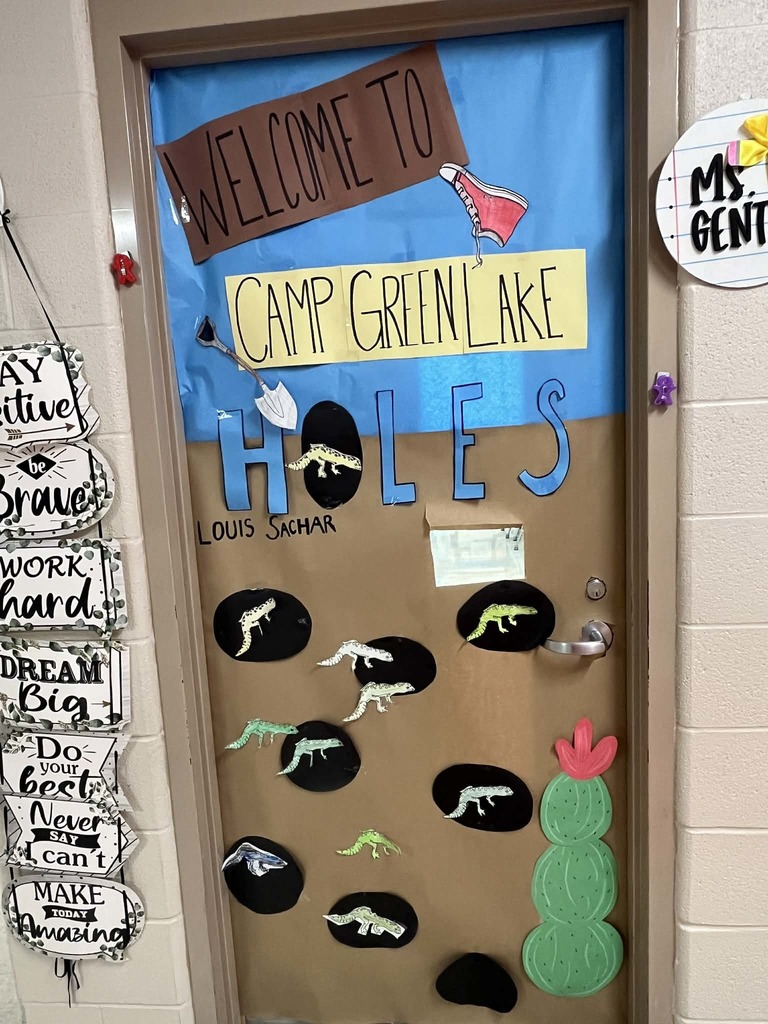 WELCOME TO
CAMP GREEN LAKE
HOLES
LOUIS SACHAR
MS.
GENT
AY
itive
be
Brave
WORK
hard
DREAM
Big
Do
your
best
Never
SAY
I can't
MAKE
TODAY
Amazing